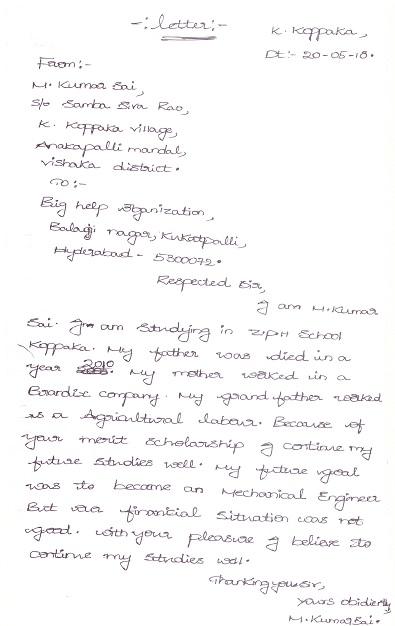 -:letter:-
K. Koppaka,
Dt:- 20-05-18.
From:-
M. Kumar Sai,
S/o Samba Siva Rao,
K. Koppaka village,
Anakapalli mandal,
vishaka district.
To:-
Big help organization,
Balagji nagar, Kukatpalli,
Hyderabad - 5300072.
Respected Sir,
I am M.Kumar
Sai. I'm am studying in ZPH School
Koppaka. My father was died in a
year 2010. My mother worked in a
Brandix company. My grand father worked
as a Agricultural labour. Because of
your merit scholarship I continue my
future studies well. My future goal
was to become an Mechanical Engineer
But our finantial situation was not
good. with your pleasure I believe to
continue my studies well.
Thanking you sir,
yours obidiently
M.Kumar Sai.